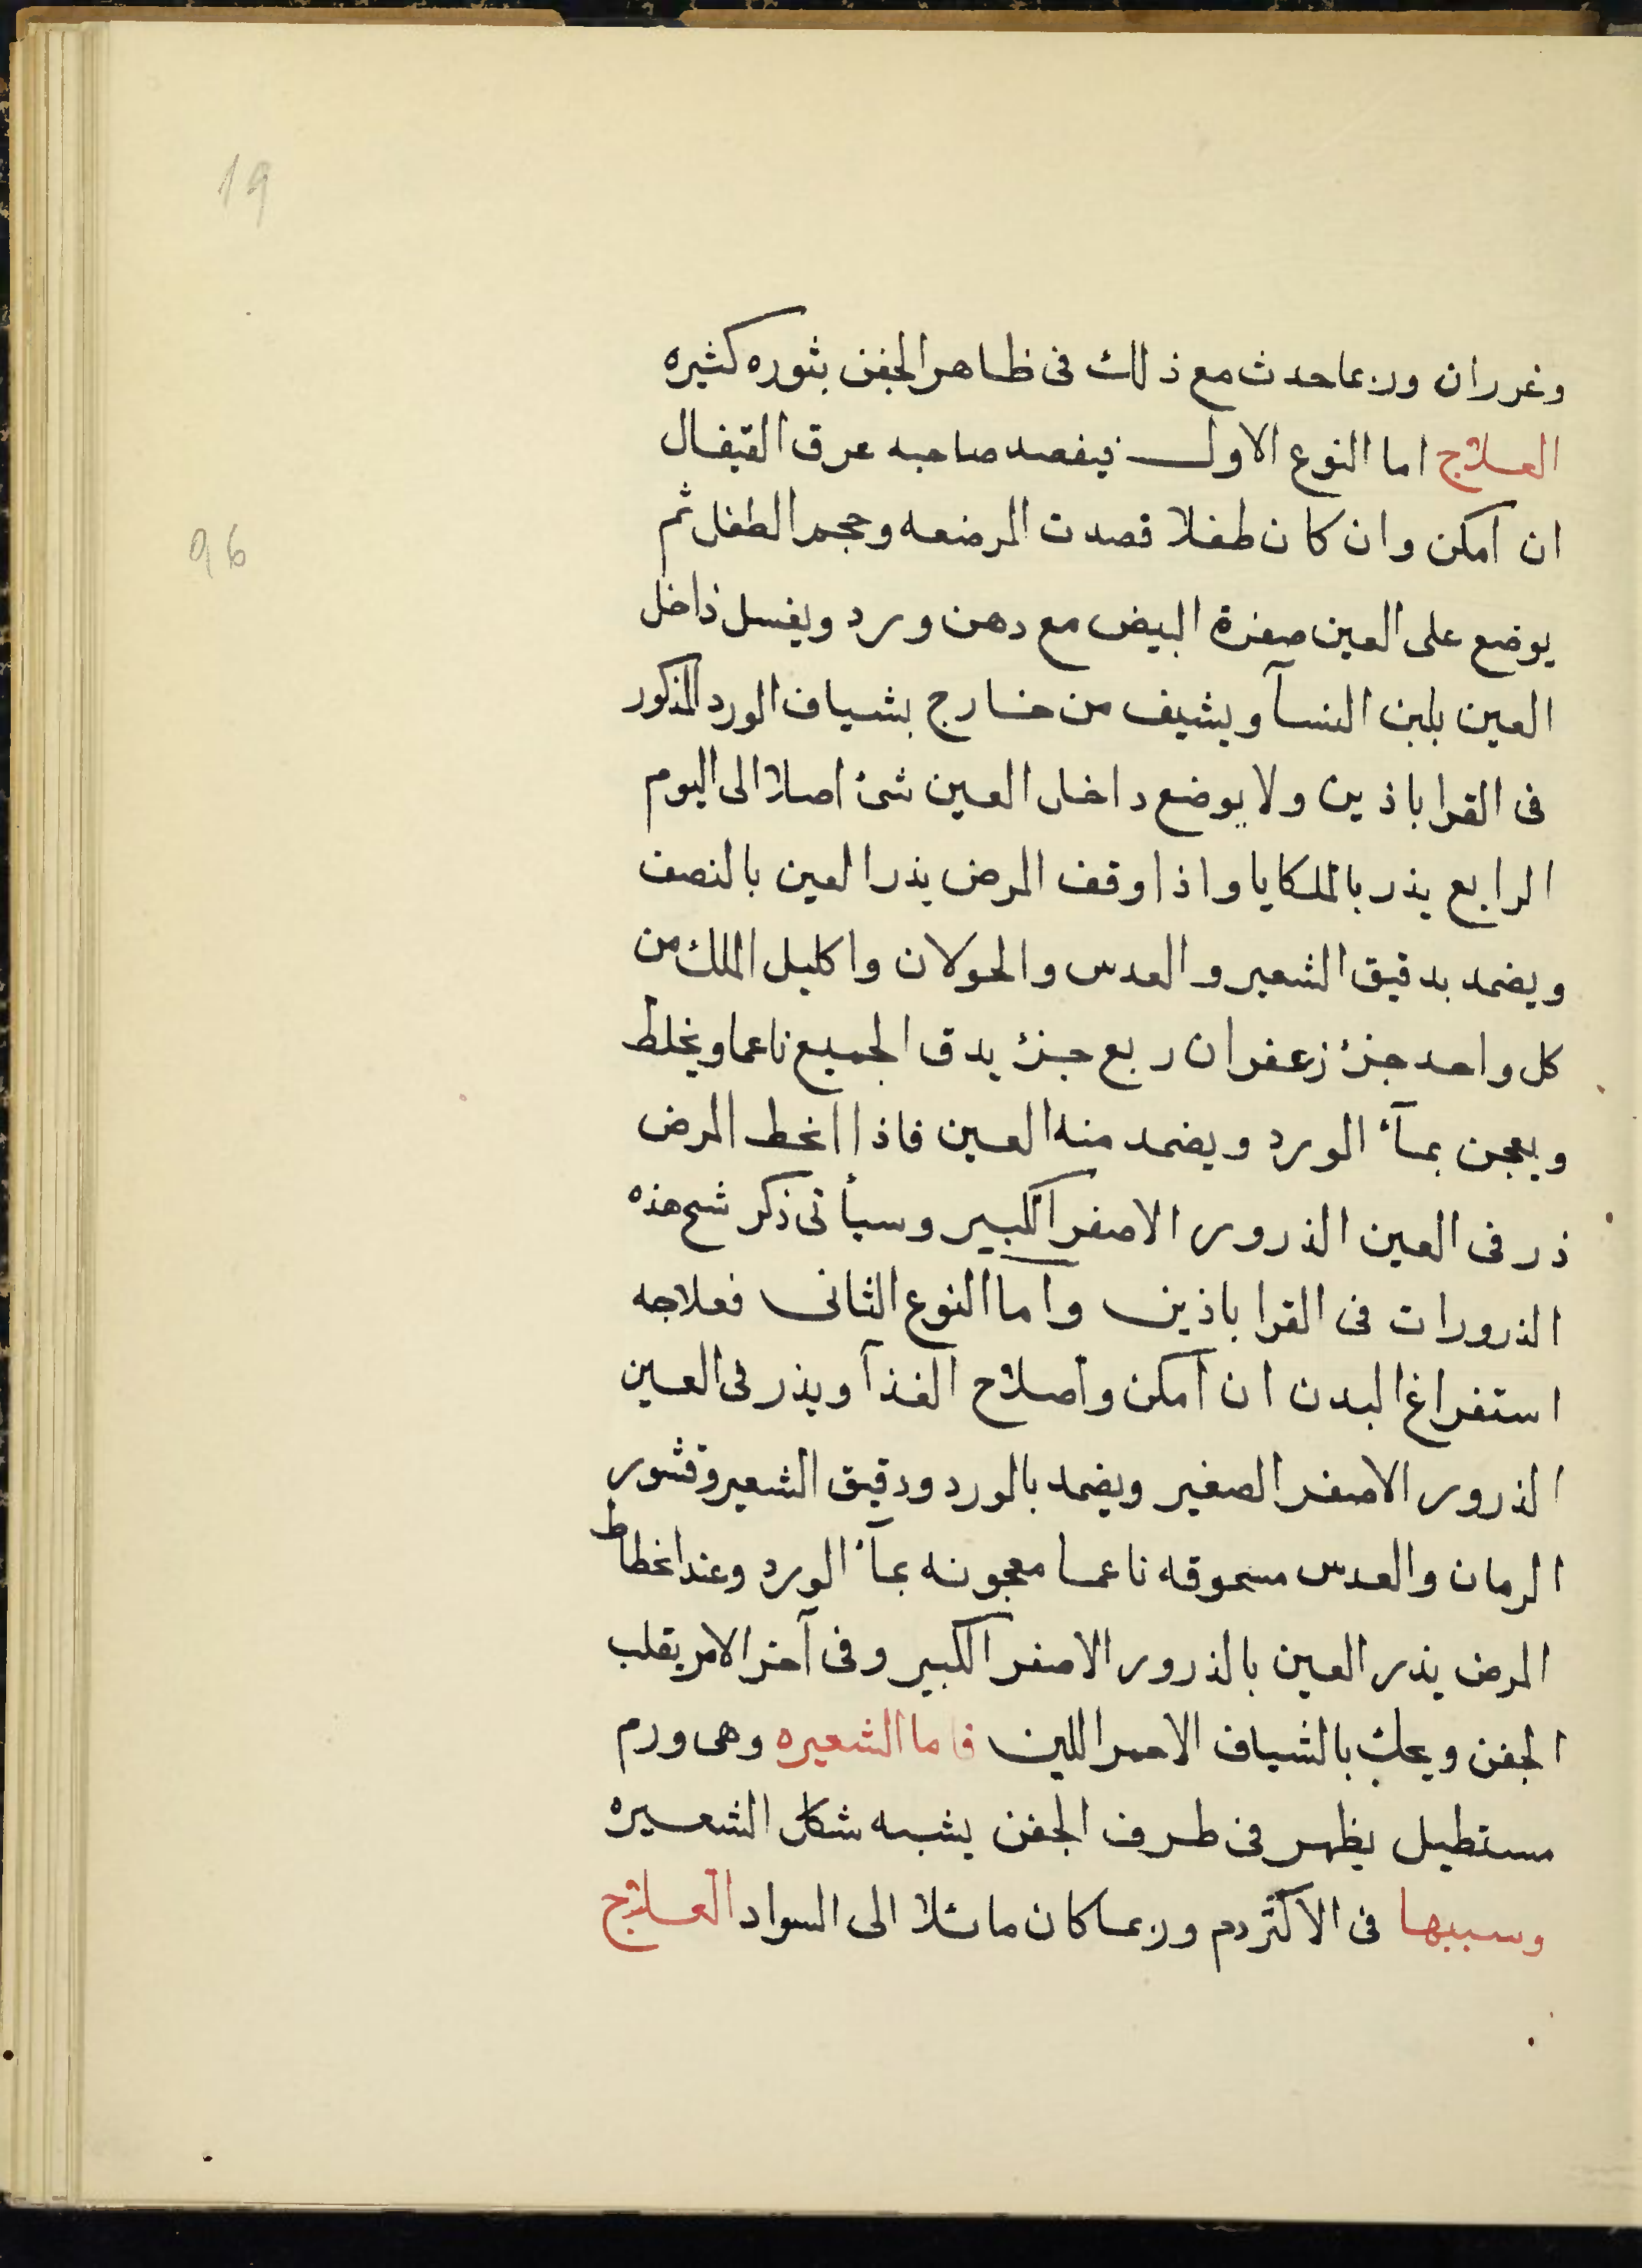 19
وغرران وربما حدث مع ذلك فى ظاهر الجفن بثوره كثيره
العلاج اما النوع الاول فيفصد صاحبه عرق القيفال
ان امكن وان كان طفلا فصدت المرضعه وحجم الطفل ثم
96
يوضع على العين صفرة البيض مع دهن ورد ويغسل داخل
العين بلبن النسآ ويشيف من خارج بشياف الورد المذكور
فى القراباذين ولا يوضع داخل العين شئ اصلا الى اليوم
الرابع يذر بالملكايا واذا وقف المرض يذر العين بالنصف
ويضمد بدقيق الشعير والعدس والحولان واكليل الملك من
كل واحد جزء زعفران ربع جزء يدق الجميع ناعما ويخلط
ويعجن بمآء الورد ويضمد منه العين فاذا انحط المرض
ذر فى العين الذرور الاصفر الكبير وسيأتى ذكر شرح هذه
الذرورات فى القراباذين واما النوع الثانى فعلاجه
استفراغ البدن ان امكن واصلاح الغذآ ويذر فى العين
الذرور الاصفر الصغير ويضمد بالورد ودقيق الشعير وقشور
الرمان والعدس مسحوقه ناعما معجونه بمآء الورد وعند انحطاط
المرض يذر العين بالذرور الاصفر الكبير وفى آخر الامر يقلب
الجفن ويحك بالشياف الاحمر اللين فاما الشعيره وهى ورم
مستطيل يظهر فى طرف الجفن يشبه شكل الشعيره
وسببها فى الاكثر دم وربما كان مائلا الى السواد العلاج